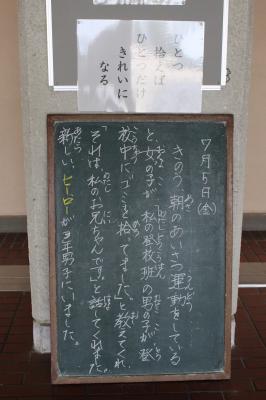 ひとつ
拾えば
ひとつだけ
きれいに
なる
7月5日(金)
きのう、朝のあいさつ運動をしている
と、女の子が、「私の登校班の男の子が、登
校中にゴミを拾ってました」と教えてくれ、
「それは、私のお兄ちゃんです。」と話してくれました。
新しいヒーローが3年男子にいました。